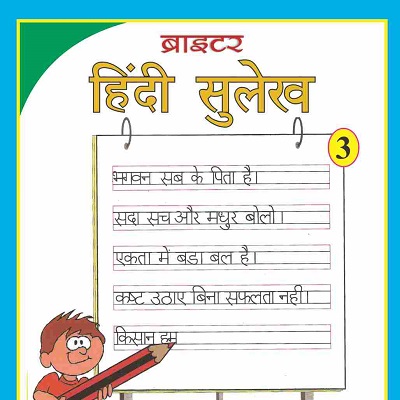 ब्राइटर
हिंदी सुलेख
3
भगवन सब के पिता है।
सदा सच और मधुर बोलो।
एकता में बड़ा बल है।
कष्ट उठाए बिना सफलता नही।
किसान हम